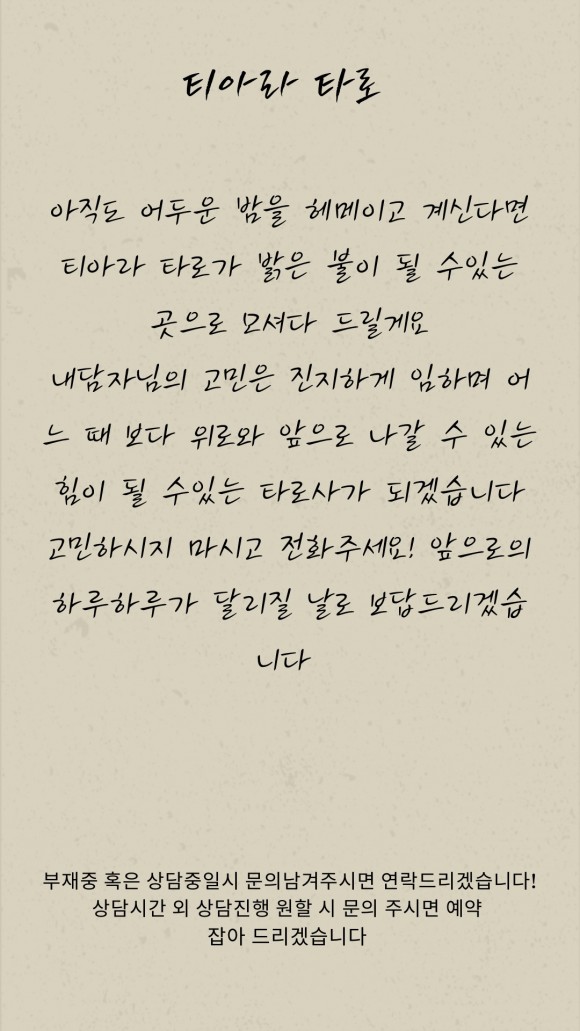 티아라 타로
아직도 어두운 밤을 헤메이고 계신다면
티아라 타로가 밝은 불이 될 수있는
곳으로 모셔다 드릴게요
내담자님의 고민은 진지하게 임하며 어
느 때 보다 위로와 앞으로 나갈 수 있는
힘이 될 수있는 타로사가 되겠습니다
고민하시지 마시고 전화주세요! 앞으로의
하루하루가 달리질 날로 보답드리겠습
니다
부재중 혹은 상담중일시 문의남겨주시면 연락드리겠습니다!
상담시간 외 상담진행 원할 시 문의 주시면 예약
잡아 드리겠습니다